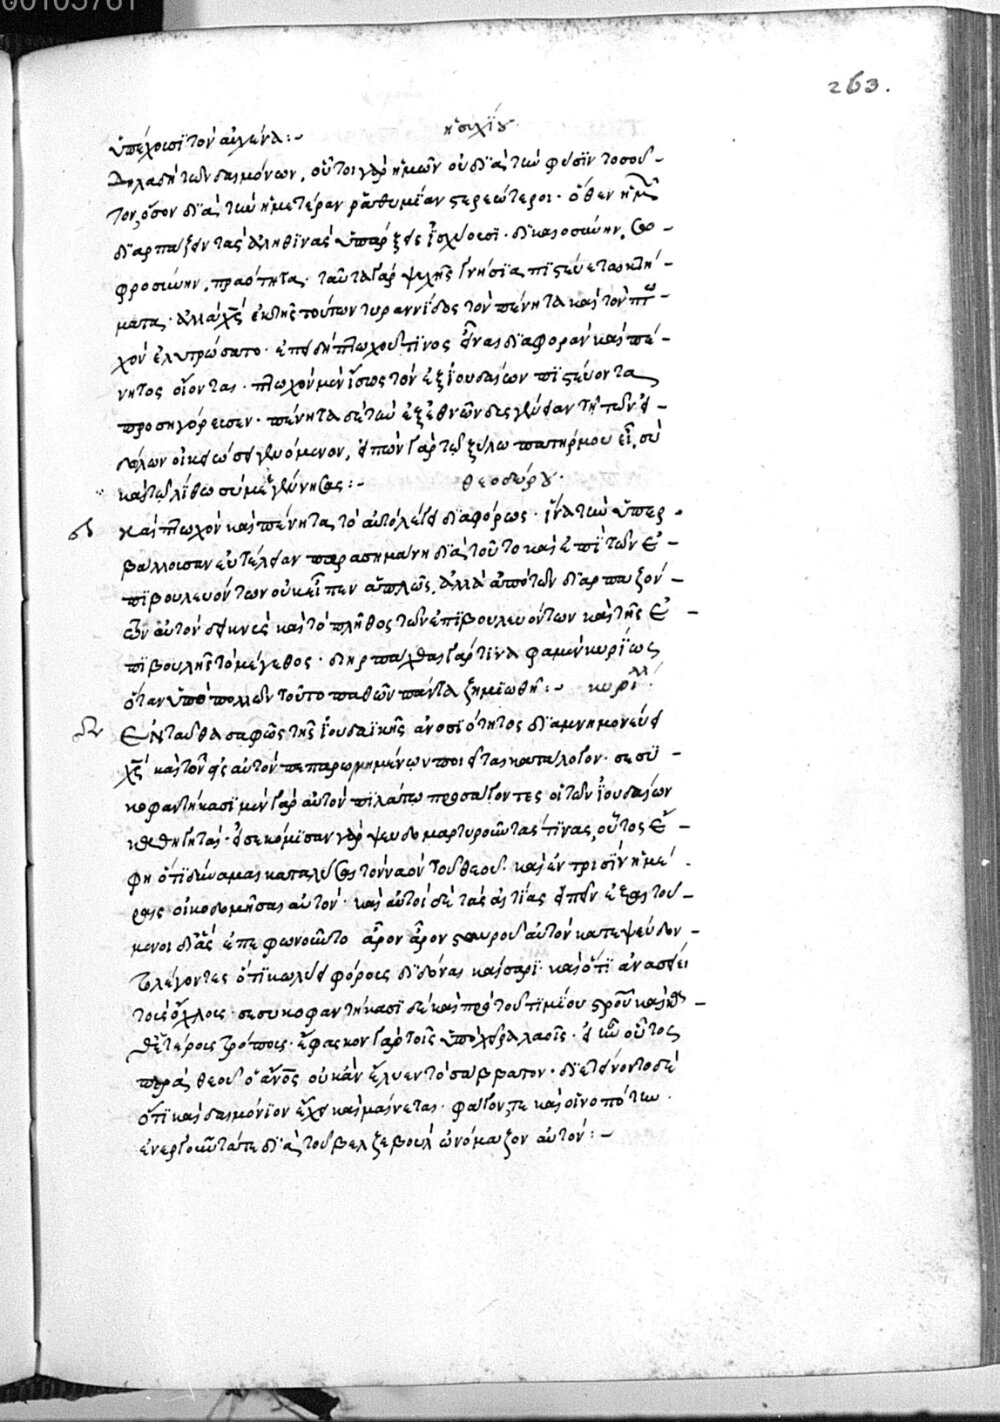 263.
ὑπέχουσι τὸν αὐχένα:~ ἡσυχίου
Δηλαδὴ τῶν δαιμόνων, οὗτοι γὰρ ἡμῶν οὐ διὰ τὴν φύσιν τοσοῦ-
τον, ὅσον διὰ τὴν ἡμετέραν ῥαθυμίαν στερεώτεροι· ὅθεν ἡμῶν
διαρπάζειν τὰς ἀληθινὰς ὑπάρξεις ἰσχύουσι· δικαιοσύνην, σω-
φροσύνην, πραότητα· ταῦτα γὰρ ψυχῆς γνήσια πιστεύεται κτή-
ματα· ἀλλὰ χς ἐκ τῆς τούτων τυραννίδος τὸν πένητα καὶ τὸν πτω-
χὸν ἐλυτρώσατο· ἐπειδὴ πτωχοῦ τινὸς εἶναι διαφορὰν καὶ πέ-
νητος οἴονται· πτωχὸν μὲν ἴσως τὸν ἐξ ἰουδαίων πιστεύοντα
προσηγόρευσεν· πένητα δὲ τὸν ἐξ ἐθνῶν
δώλων οἰκειώσει γενόμενον, εἰπὼν γὰρ τῷ ξύλω πατήρ μου εἶ, σὺ
καὶ τῷ λίθω σύ με ἐγέννησας:~ θεοδώρου
Καὶ πτωχὸν καὶ πένητα τὸ αὐτὸ λέγει διαφόρως· ἵνα τὴν ὑπερ-
βάλλουσαν εὐτέλειαν παρασημαίνη διὰ τοῦτο καὶ ἐπὶ τῶν ἐ-
πιβουλευόντων οὐκ εἶπεν ἁπλῶς, ἀλλὰ ἀπὸ τῶν διαρπαζόν-
των αὐτὸν δεικνὺς καὶ τὸ πλῆθος τῶν ἐπιβουλευόντων καὶ τῆς ἐ-
πιβουλῆς τὸ μέγεθος· διηρπάχθαι γάρ τινα φαμὲν κυρίως
ὅταν ὑπὸ πολλῶν τοῦτο παθὼν πάντα ζημιωθῆ:~ κυρίλλ
Ἐνταῦθα σαφῶς τῆς ἰουδαϊκῆς ἀνοσιότητος διαμνημονεύει
χς καὶ τῶν εἰς αὐτὸν πεπαρωνημένων ποιεῖται κατάλογον· σεσυ-
κοφαντήκασι μὲν γὰρ αὐτὸν πιλάτω προσάγοντες οἱ τῶν ἰουδαίων
καθηγηταί· εἰσεκόμισαν γὰρ ψευδομαρτυροῦντας τινας, οὗτος ἔ-
φη ὅτι δύναμαι καταλῦσαι τὸν ναὸν τοῦ θεοῦ· καὶ ἐν τρισὶν ἡμέ-
ραις οἰκοδομῆσαι αὐτόν· καὶ αὐτοὶ δὲ τὰς αἰτίας εἰπεῖν ἐξαιτού-
μενοι δι' ἃς ἐπεφωνοῦντο ἆρον ἆρον σταυροῦ αὐτὸν κατεψεύδον-
το λέγοντες ὅτι κωλύει φόρους διδόναι καίσαρι· καὶ ὅτι ἀνασείει
τοὺς ὄχλους· σεσυκοφαντήκασι δὲ καὶ πρὸ τοῦ τιμίου σταυροῦ καὶ καθ'
ἑτέρους τρόπους· ἔφασκον γὰρ τοῖς ὑπὸ χεῖρα λαοῖς· εἰ ἦν οὗτος
παρὰ θεοῦ ὁ ἄνος οὐκ ἂν ἔλυεν τὸ σάββατον· διετείνοντο δὲ
ὅτι καὶ δαιμόνιον ἔχει καὶ μαίνεται· φάγον τε καὶ οἰνοπότην·
ἐνεργοῦντά τε διὰ τοῦ βεελζεβοὺλ ὠνόμαζον αὐτόν:~